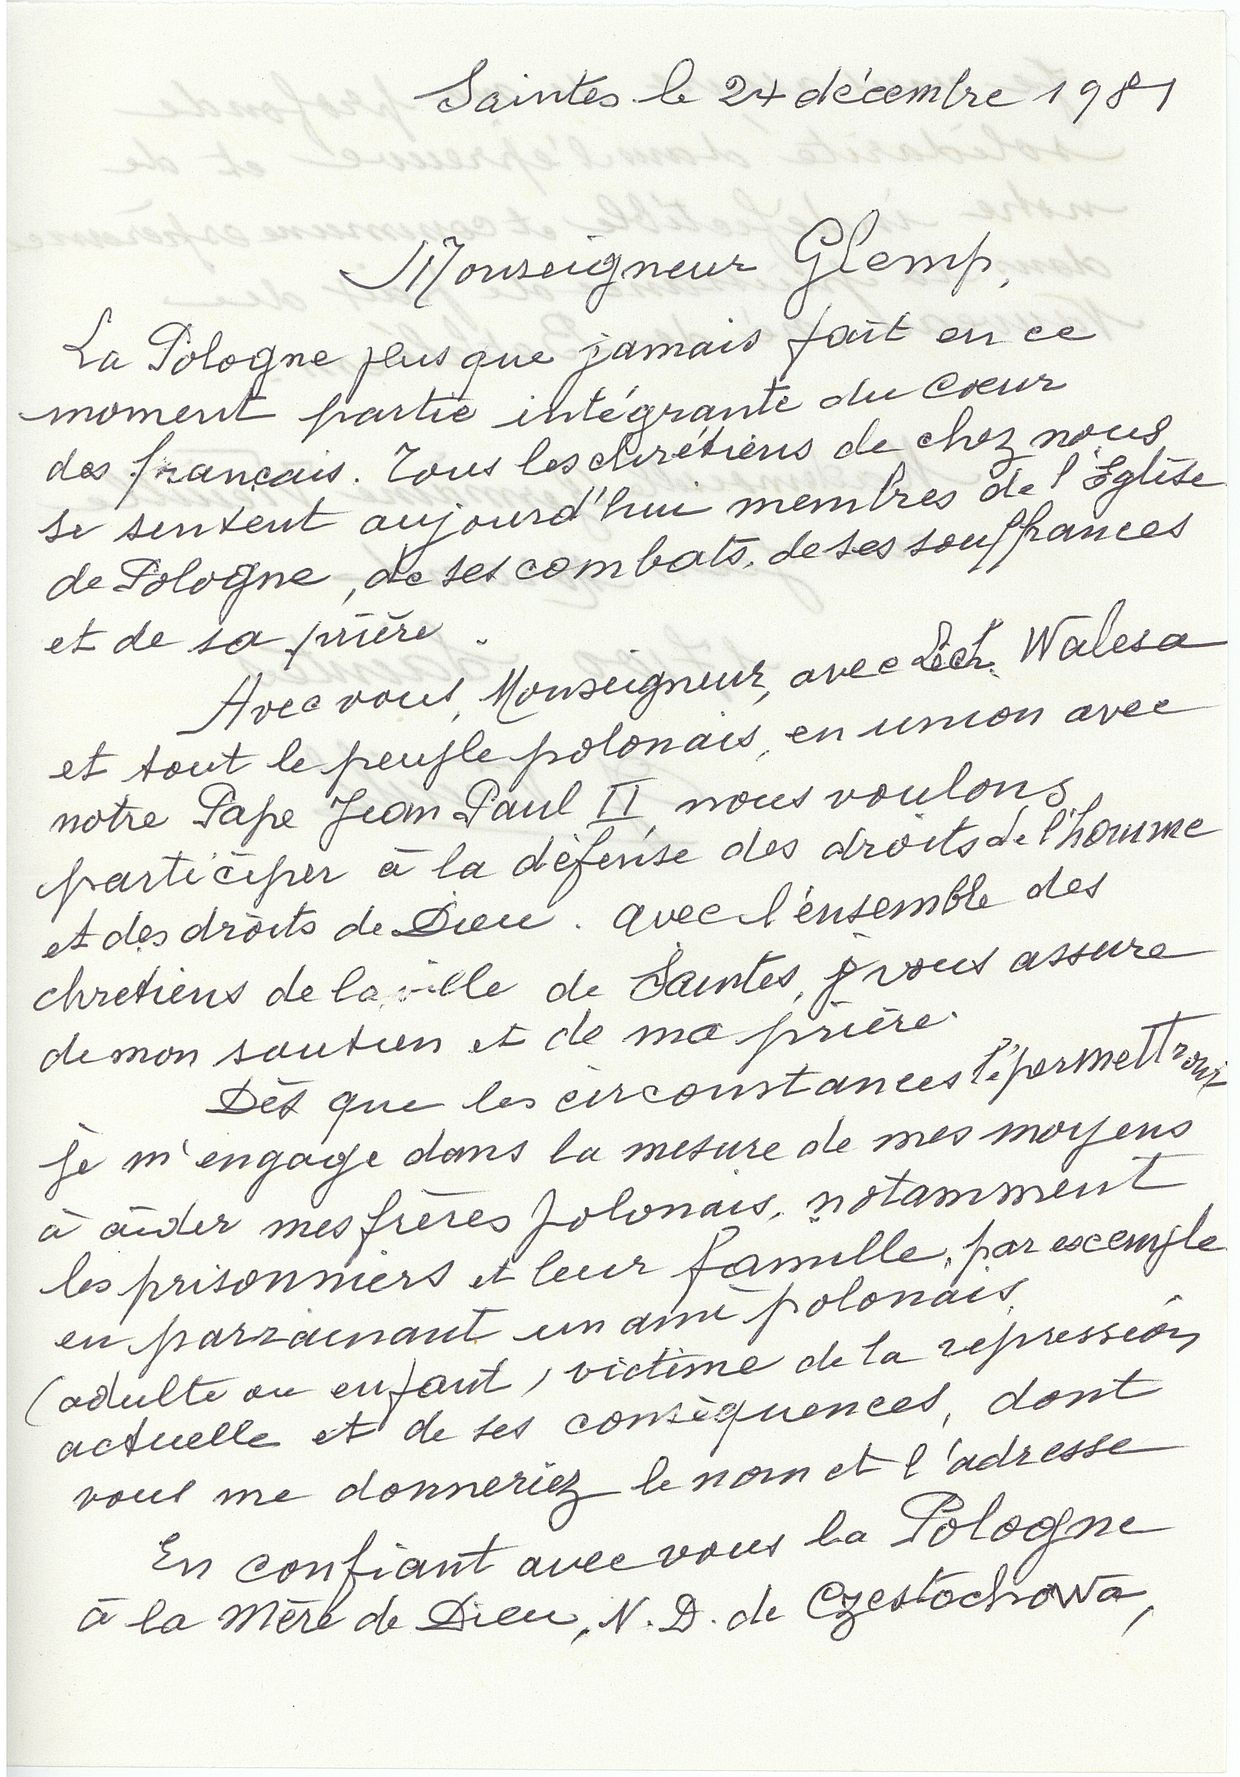 Saintes le 24 décembre 1981
Monseigneur Glemp,
La Pologne plus que jamais fait en ce
moment partie intégrante du Coeur
des français. Tous les chrétiens de chez nous
se sentent aujourd'hui membres de l'Eglise
de Pologne, de ses combats, de ses souffrances
et de sa prière.
Avec vous, Monseigneur, avec Lech Walesa
et tout le peuple polonais, en union avec
notre Pape Jean Paul II nous voulons
participer à la défense des droits de l'homme
et des droits de Dieu. avec l'ensemble des
chretiens de la ville de Saintes, je vous assure
de mon soutien et de ma prière.
Dès que les circonstances le permettront
je m'engage dans la mesure de mes moyens
à aider mes frères polonais, notamment
les prisonniers et leur famille, par exemple
en parrainant un ami polonais,
(adulte ou enfant) victime de la répression
actuelle et de ses conséquences, dont
vous me donneriez le nom et l'adresse
En confiant avec vous la Pologne
à la Mère de Dieu, N. D. de Czestochowa,